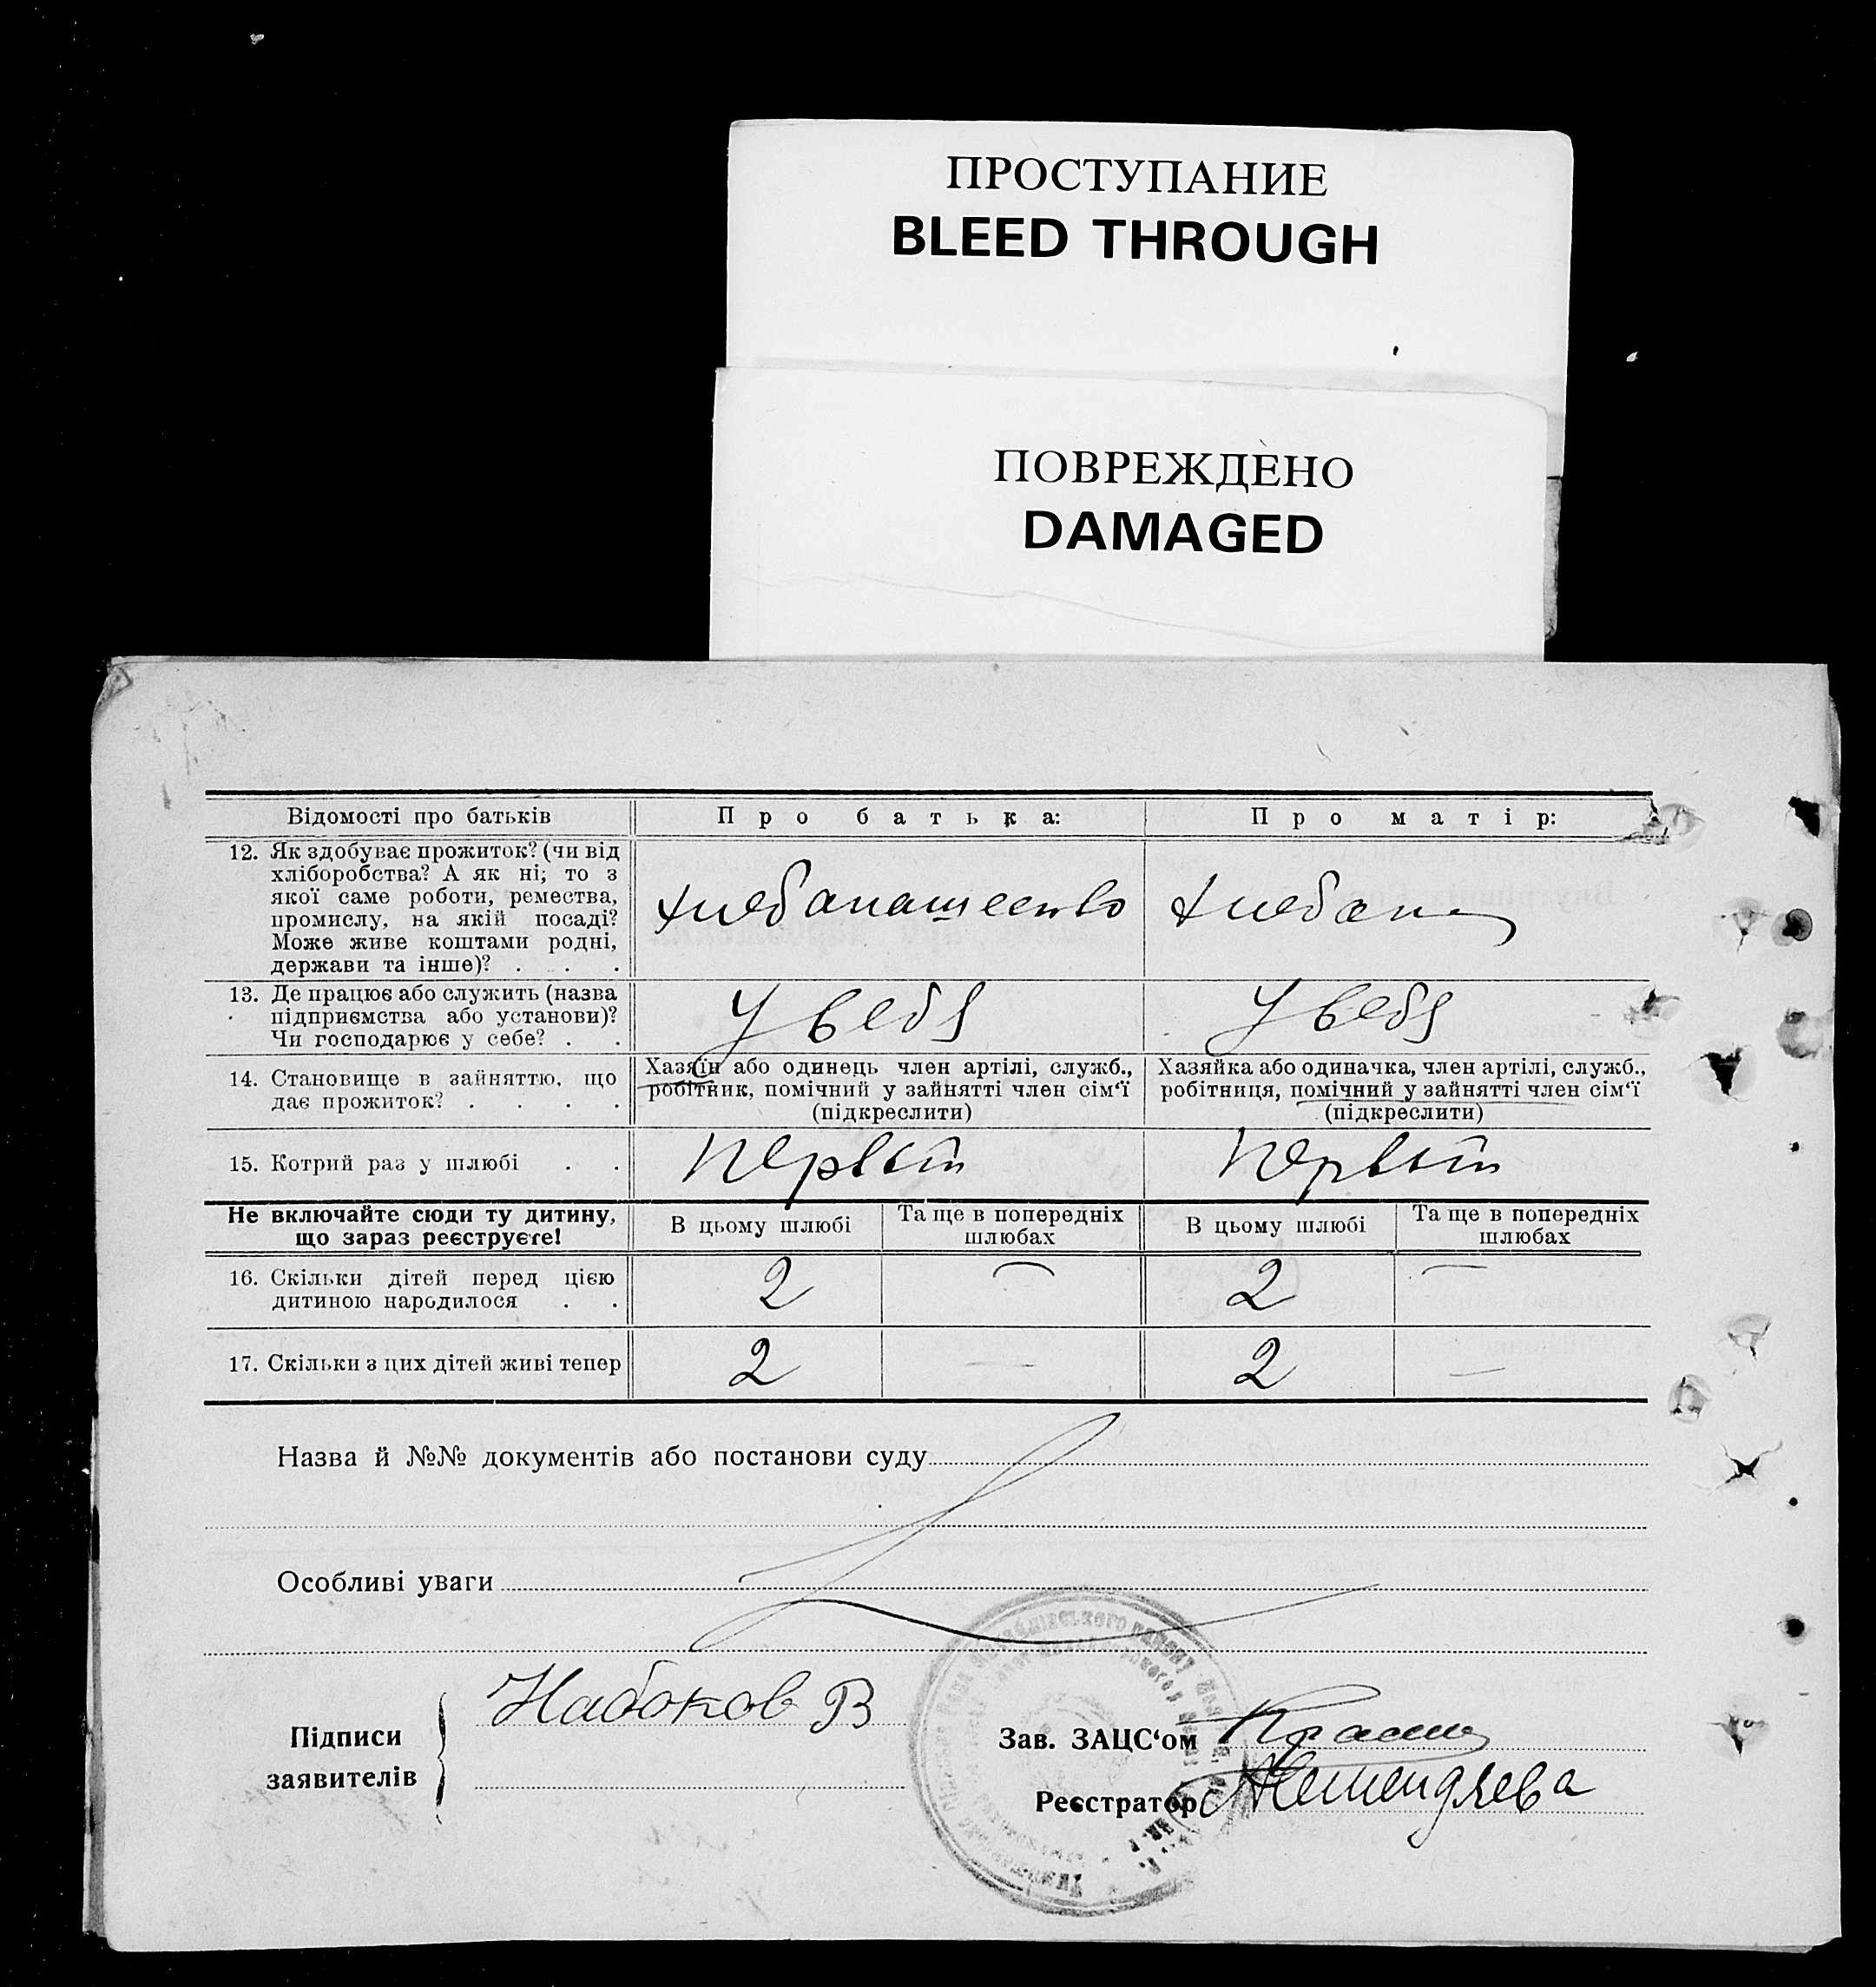 ПРОСТУПАНИЕ
BLEED THROUGH
ПОВРЕЖДЕНО
DAMAGED
Відомості про батьків
Про батька:
Про матір:
12. Як здобуває прожиток? (чи від
хліборобства? А як ні; то з
якої саме роботи, ремества,
промислу, на якій посаді?
Може живе коштами родні,
держави та інше)? . . .
хлебапашество
хлебапа
13. Де працює або служить (назва
підприємства або установи)?
Чи господарює у себе? . .
У себя
У себя
14. Становище в зайняттю, що
дає прожиток? . . . .
Хазяїн або одинець член артілі, служб.,
робітник, помічний у зайнятті член сім‘ї
(підкреслити)
Хазяйка або одиначка, член артілі, служб.,
робітниця, помічний у зайнятті член сім‘ї
(підкреслити)
15. Котрий раз у шлюбі . .
Первый
Первый
Не включайте сюди ту дитину,
що зараз реєструєте!
В цьому шлюбі
Та ще в попередніх
шлюбах
В цьому шлюбі
Та ще в попередніх
шлюбах
16. Скільки дітей перед цією
дитиною народилося . .
2
—
2
—
17. Скільки з цих дітей живі тепер
2
—
2
—
Назва й №№ документів або постанови суду
Особливі уваги
Підписи
заявителів
Набоков В
Зав. ЗАЦС‘ом
Реєстратор